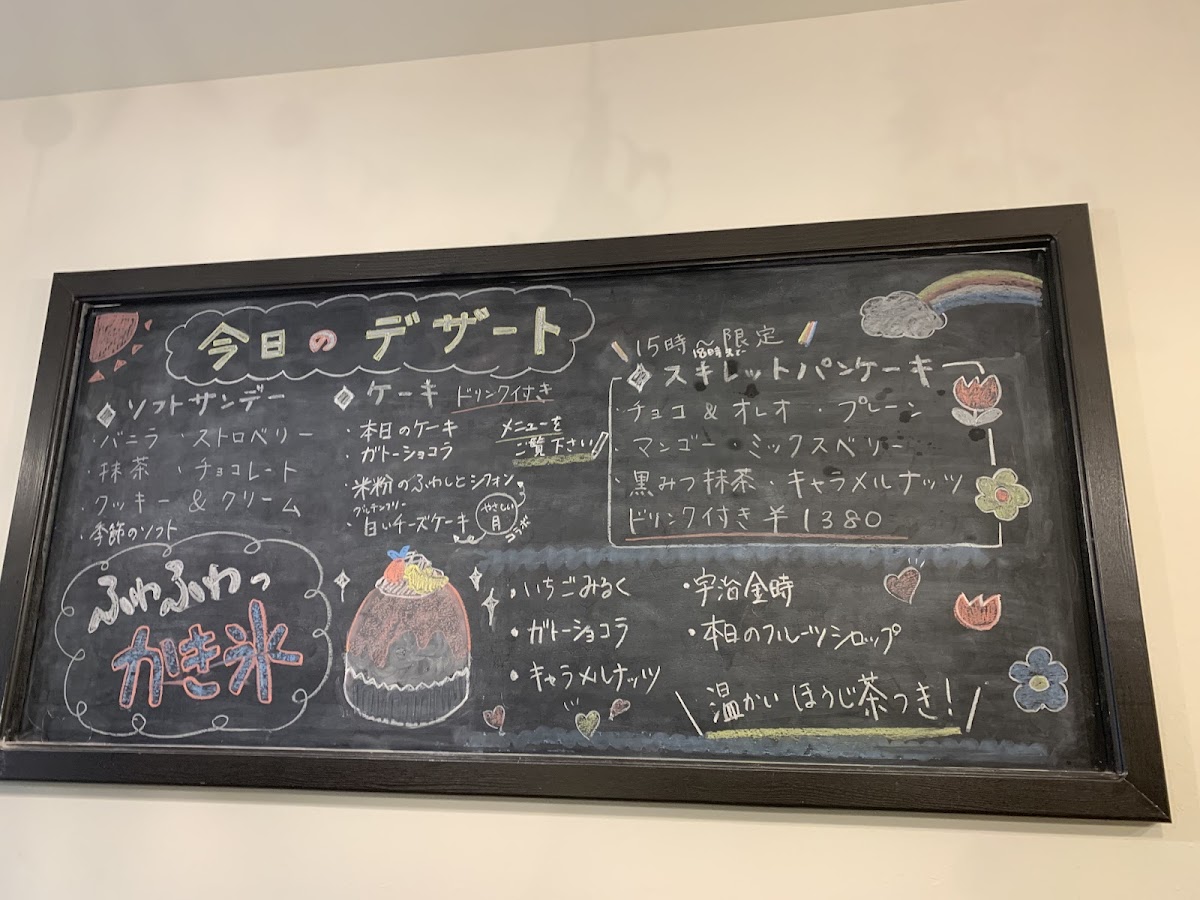 今日のデザート
◈ソフトサンデー
・バニラ ・ストロベリー
・抹茶 ・チョコレート
・クッキー & クリーム
・季節のソフト
◈ケーキ ドリンク付き
・本日のケーキ
・ガトーショコラ
メニューを
ご覧下さい
・米粉のふわしとシフォン
グルテンフリー
・白いチーズケーキ
やさしい
月
コラボ
15時〜限定
18時まで
◈スキレットパンケーキ
・チョコ & オレオ ・プレーン
・マンゴー ・ミックスベリー
・黒みつ抹茶 ・キャラメルナッツ
ドリンク付き ¥1380
ふわふわっ
かき氷
・いちごみるく
・ガトーショコラ
・キャラメルナッツ
・宇治金時
・本日のフルーツシロップ
\温かいほうじ茶つき!/